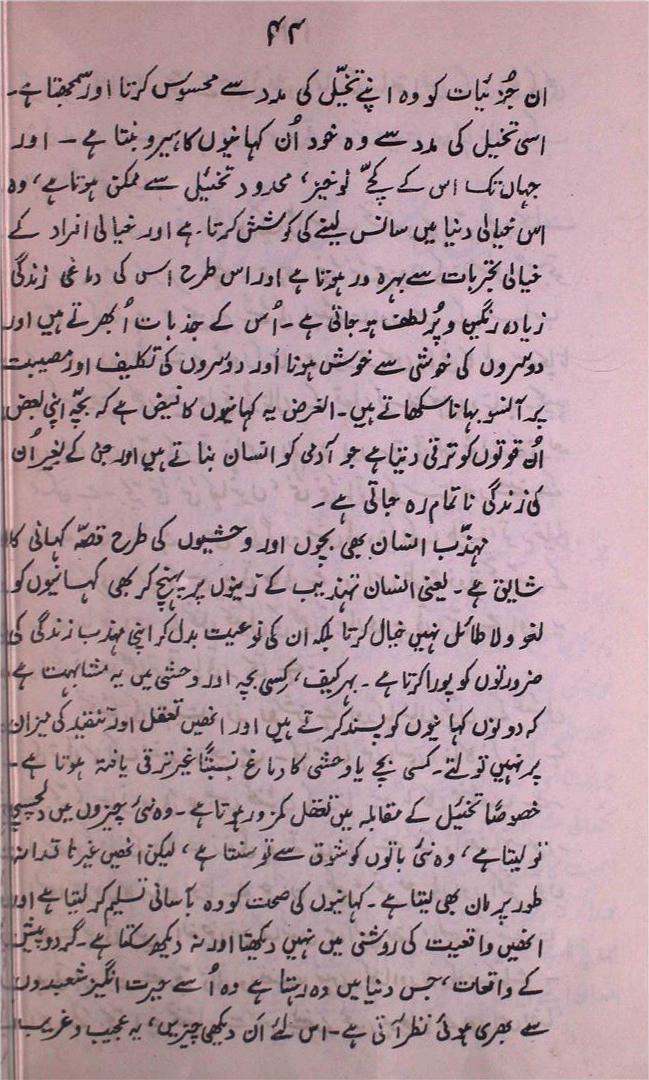 ۴۲
ان جُزئیات کو وہ اپنے تخیّل کی مدد سے محسوس کرتا اور سمجھتا ہے۔
اسی تخیل کی مدد سے وہ خود اُن کہانیوں کا ہیرو بنتا ہے - اور
جہاں تک اس کے کچّے نوخیز، محدود تخیئل سے ممکن ہوتا ہے، وہ
اس خیالی دنیا میں سانس لینے کی کوشش کرتا ہے اور خیالی افراد کے
خیالی تجربات سے بہرہ ور ہوتا ہے اور اس طرح اس کی دماغی زندگی
زیادہ رنگین و پُر لطف ہو جاتی ہے۔ اُس کے جذبات اُبھرتے ہیں اور
دوسروں کی خوشی سے خوش ہونا اور دوسروں کی تکلیف اور مصیبت
پر آنسو بہانا سکھاتے ہیں۔ الغرض یہ کہانیوں کا فیض ہے کہ بچّہ اپنی بعض
اُن قوتوں کو ترقی دیتا ہے جو آدمی کو انسان بناتے ہیں اور جن کے بغیر اُن
کی زندگی ناتمام رہ جاتی ہے۔
مہذّب انسان بھی بچوں اور وحشیوں کی طرح قصّہ کہانی کا
شایق ہے۔ یعنی انسان تہذیب کے زینوں پر پہنچ کر بھی کہانیوں کو
لغو ولا طائل نہیں خیال کرتا بلکہ ان کی نوعیت بدل کر اپنی مہذب زندگی کی
ضرورتوں کو پورا کرتا ہے۔ بہر کیف، کسی بچہ اور وحشی میں یہ مشابہت ہے
کہ دونوں کہانیوں کو پسند کرتے ہیں اور انھیں تعقل اور تنقید کی میزان
پر نہیں تولتے۔ کسی بچے یا وحشی کا دماغ نسبتاً غیر ترقی یافتہ ہوتا ہے۔
خصوصاً تخیئل کے مقابلہ میں تعقل کمزور ہوتا ہے۔ وہ نئی چیزوں میں دلچسپی
تو لیتا ہے، وہ نئی باتوں کو شوق سے تو سنتا ہے، لیکن انھیں غیر ناقدانہ
طور پر مان بھی لیتا ہے۔ کہانیوں کی صحت کو وہ بآسانی تسلیم کر لیتا ہے اور
انھیں واقعیت کی روشنی میں نہیں دیکھتا اور نہ دیکھ سکتا ہے۔ گرد و پیش
کے واقعات، جس دنیا میں وہ رہتا ہے وہ اُسے حیرت انگیز شعبدوں
سے بھری ہوئی نظر آتی ہے۔ اس لئے اَن دیکھی چیزیں، یہ عجیب و غریب